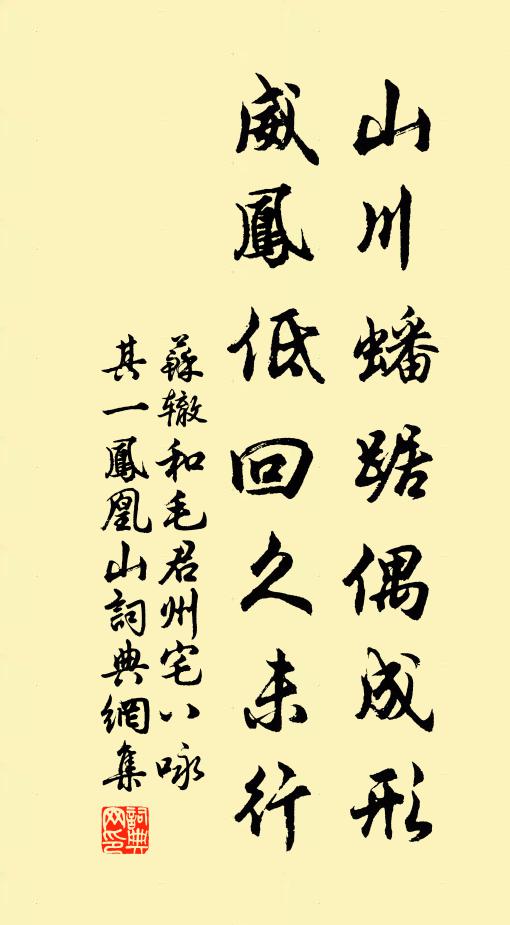 山川蟠踞偶成形
威鳳低回久未行
蘇辙和毛君州宅八咏
其一鳳凰山詞典網集
詞典网印